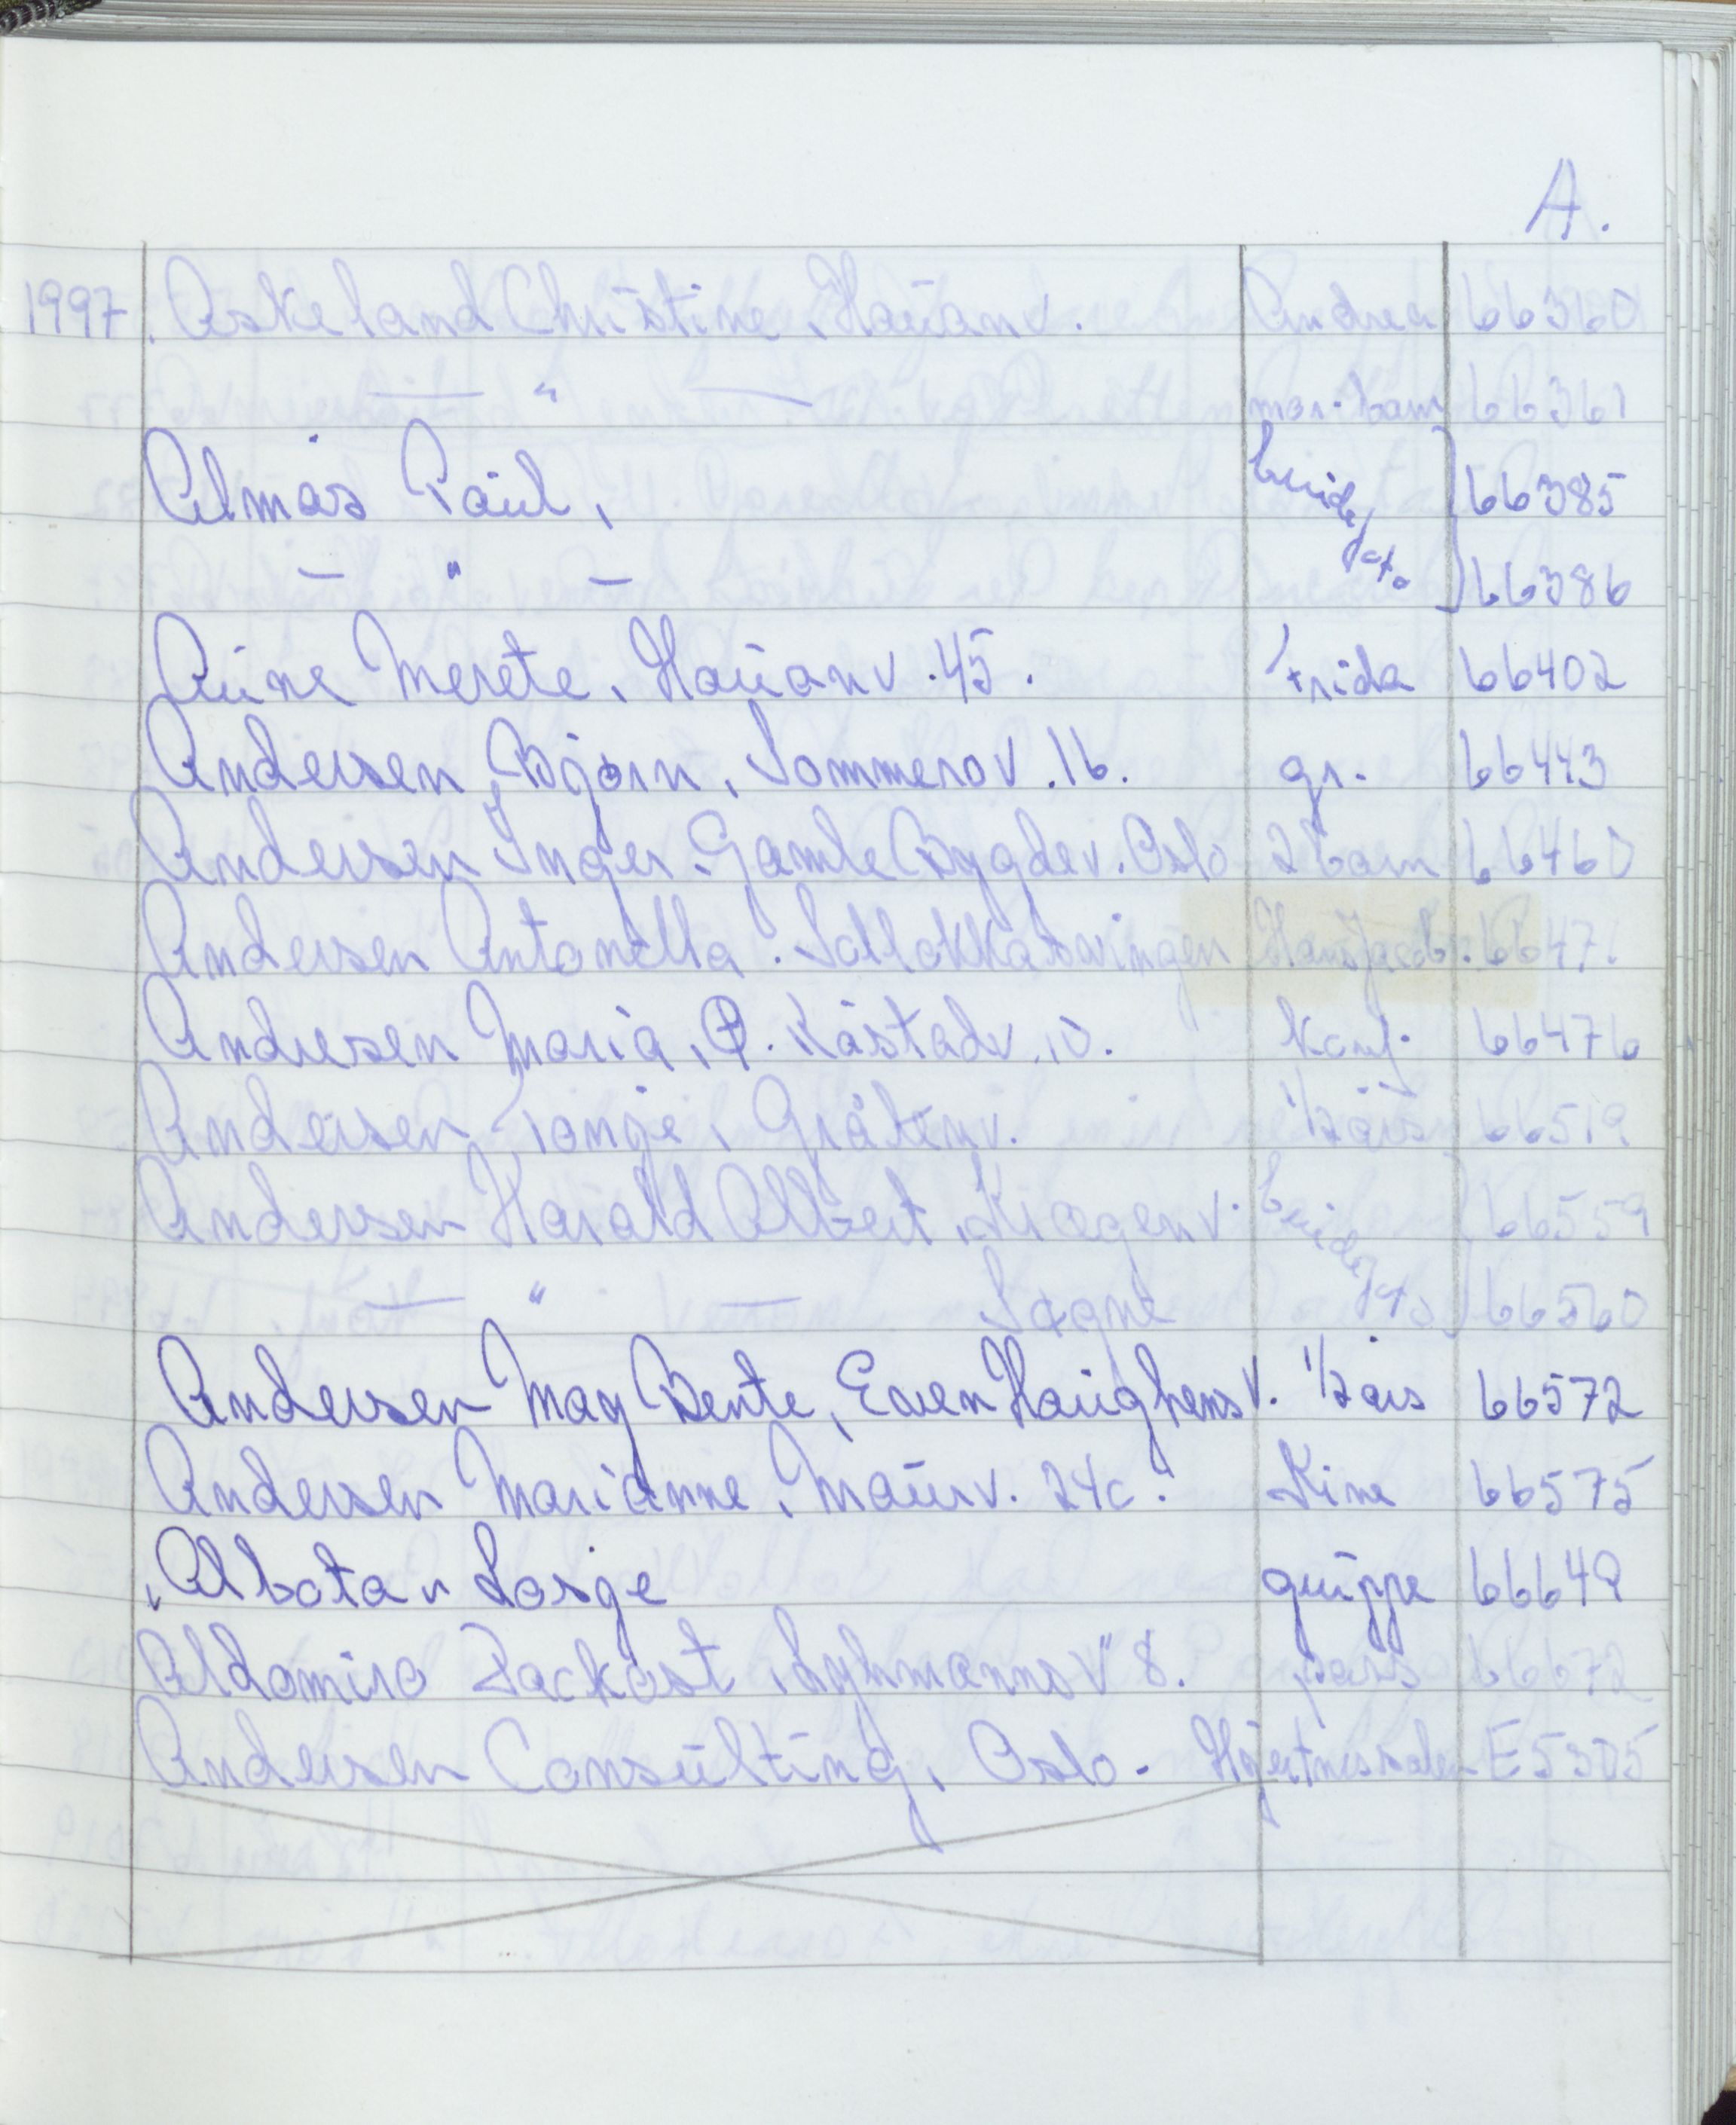 A.
1997. Askeland Christine, Hauanv. Andrea 66360
— " — mor-barn 66361
Almås Paul, 66385
— " — 66386
Aune Merete, Hauanv. 45. Frida 66402
Andersen Bjørn, Sommerov. 16. gr. 66443
Andersen Inger. Gamle Bygdev. Oslo 2 barn 66460
Andersen Antonella. Sollokkasvingen Hans Jacob. 66471
Andresen Maria, P. Kåstadv. 10. Konf. 66476
Andersen Tonje, Gråtenv. 1/2 års 66519
Andersen Harald Albert, Kragenv. 66559
— " — Sagne 66560
Andersen May Bente, Even Haughens V. 1/2 års 66572
Andersen Marianne, Maurv. 24c. Kine 66575
Albota Losje gruppe 66649
Aldomiro Packost, Lyhmanns V. 8. pass 66672
Andersen Consulting, Oslo. Hjertnessalen E5305